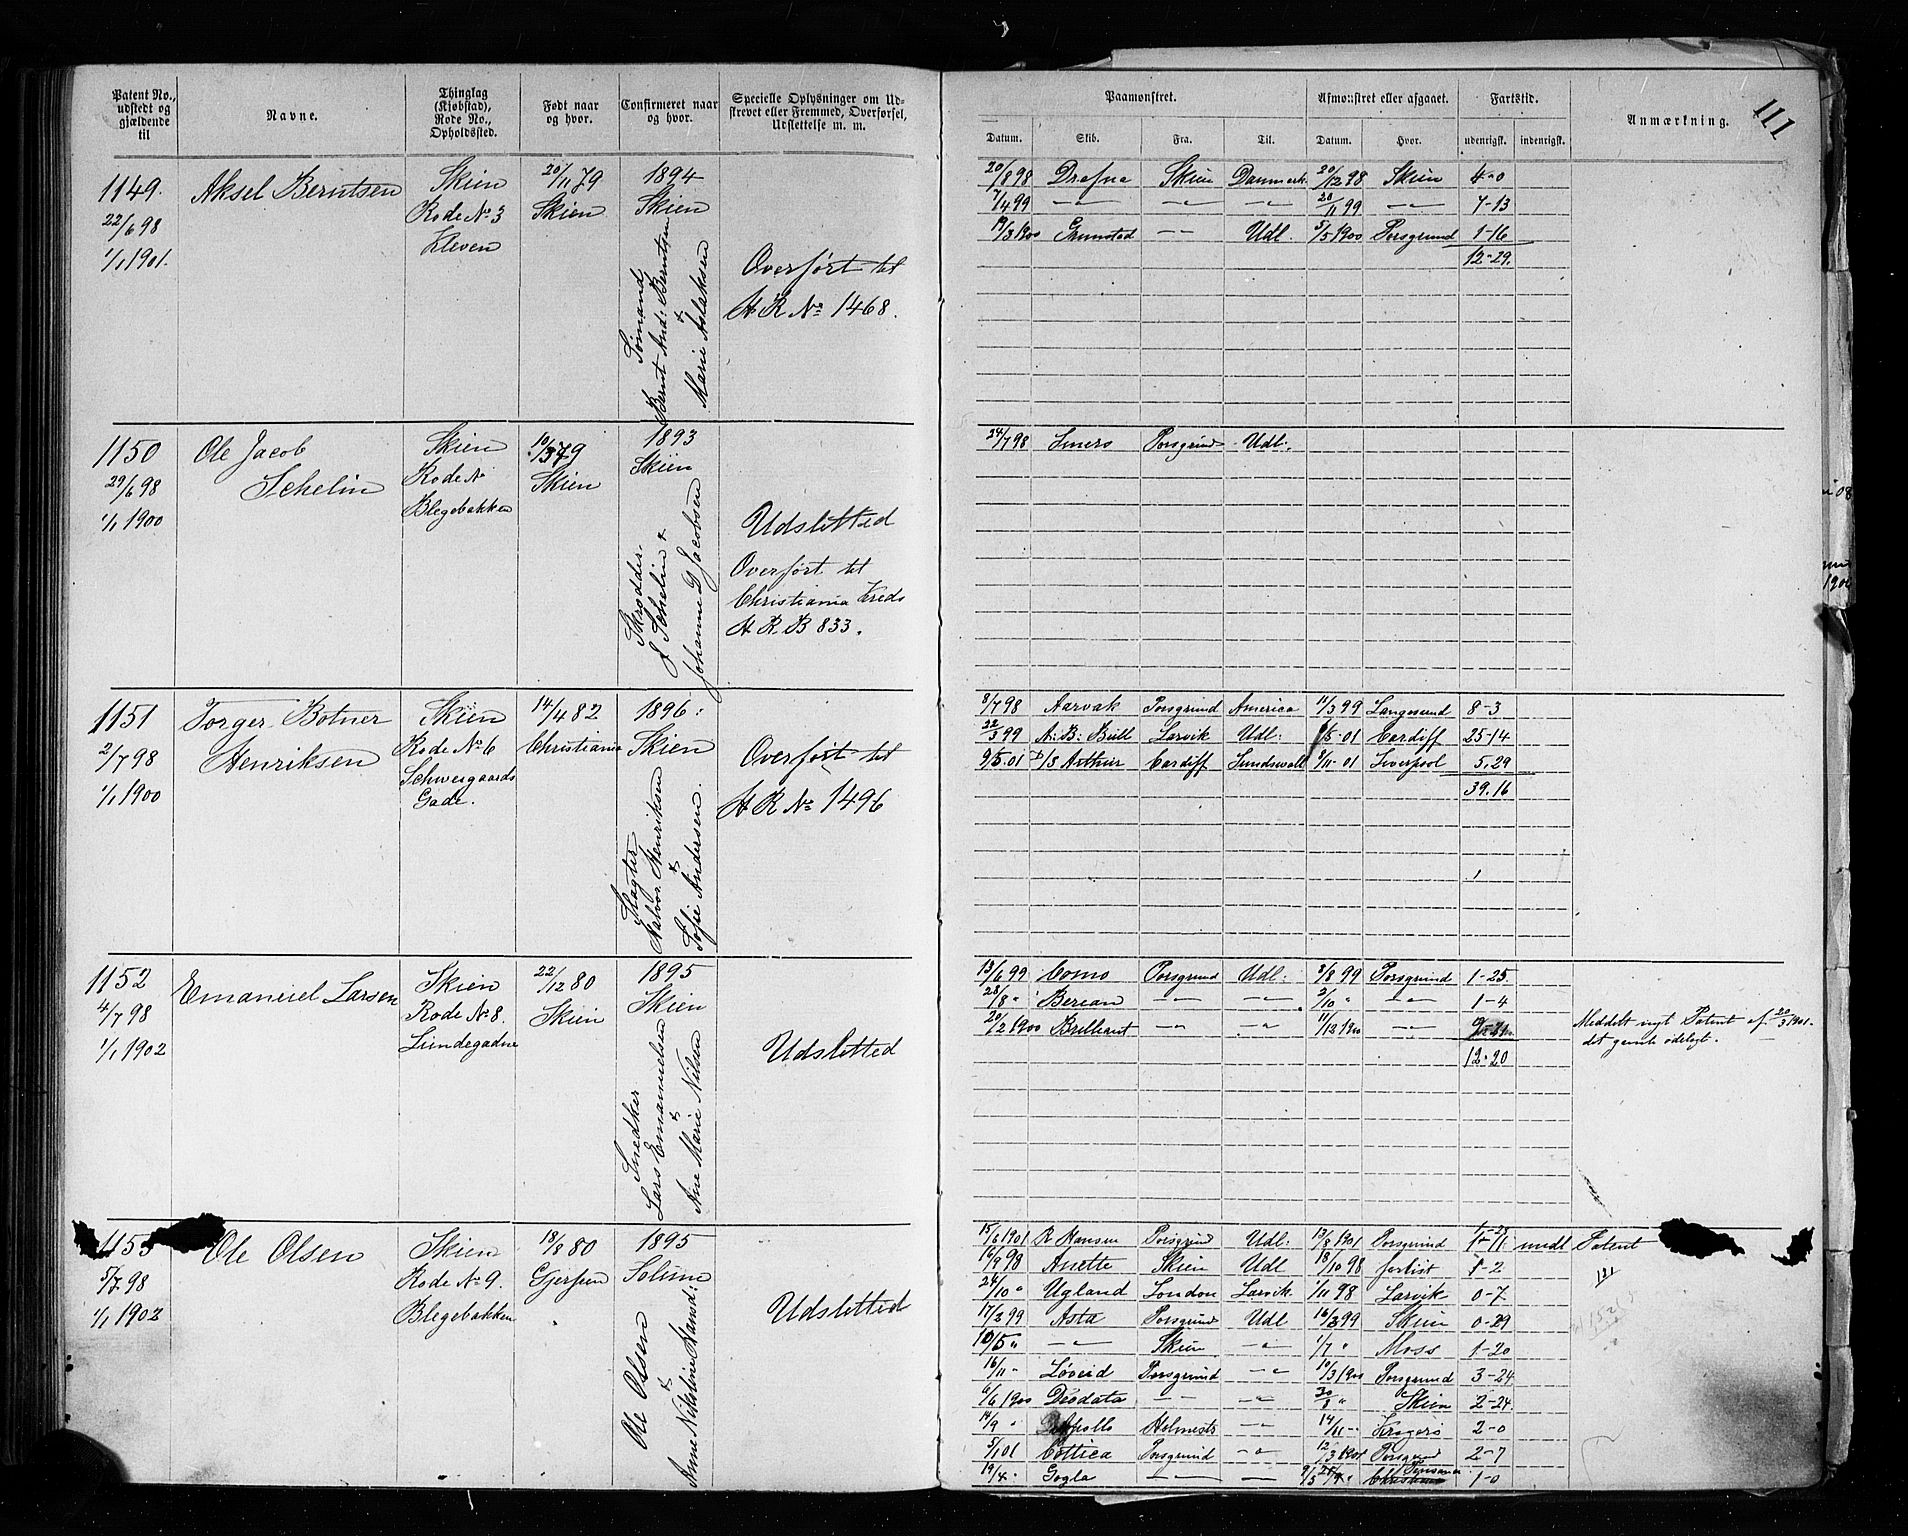 Patent No., udstedt og gjældende til
Navne.
Thinglag (Kjøbstad), Rode No., Opholdssted.
Født naar og hvor.
Confirmeret naar og hvor.
Specielle Oplysninger om Udskrevet eller Fremmed, Overførsel, Udslettelse m. m.
Paamønstret.
Afmønstret eller afgaaet.
Fartstid.
Anmærkning.
111
Datum.
Skib.
Fra.
Til.
Datum.
Hvor.
udenrigsk.
indenrigsk.
1149.
22/6 98
1/1 1901.
Aksel Berntsen
Skien
Rode No 3
Kleven
20/11 79
Skien
1894
Skien
Sømand
Bernt And: Berntsen
&
Marie Aslaksen
Overført til
H R No 1468.
20/8 98 Drafna Skien Danmark 20/12 98 Skien 4-0
7/4 99 — — — 20/11 99 — 7-13
19/3 1900 Grimstad — Udl. 5/5 1900 Porsgrund 1-16
12-29.
1150
29/6 98
1/1 1900
Ole Jacob
Schelin
Skien
Rode No
Blegebakken
10/3 79
Skien
1893
Skien
Skrædder
J Schelin &
Johanne G Jacobsen
Udsletted
Overført til
Christiania Kreds
H R B 833.
24/7 98 Porsgrund Udl.
1151
2/7 98
1/1 1900
Torger Botner
Henriksen
Skien
Rode No 6
Schweigaards
Gade.
14/4 82
Christiania
1896
Skien
Slagter
Halvor Henriksen
&
Sofie Andersen.
Overført til
H R No 1496
8/7 98 Aarvak Porsgrund America 11/3 99 Langesund 8-3
22/3 99 A: B: Bull Larvik Udl: /5-01 Cardiff 25-14
9/5 01 D/S Arthur Cardiff Sundsvall /11-01 Liverpool 5.29
39.16
1152
4/7 98
1/1 1902
Emanuel Larsen
Skien
Rode No 8.
Lundegadne
22/12 80
Skien
1895
Skien
Snedker
Lars Emanuelsen
&
Ane Marie Nilsen
Udsletted
13/6 99 Como Porsgrund Udl: 3/8 99 Porsgrund 1-25
28/8 " Berean — — 2/10 " — 1-4
20/2 1900 Brilliant — — 11/12 1900 — 9-21
12-20
Meddelt nyt Patent af 20/3 1901.
det gamle ødelagt.
1153
5/7 98
1/1 1902
Ole Olsen
Skien
Rode No 9.
Blegebakken
18/8 80
Gjerpen
1895
Solum
Ole Olsen
&
Anne Nilsline Hansd:
Udsletted
15/6 1901 R Hansen Porsgrund Udl: 13/8 1901 Porsgrund 1-28
1-11 mudl Patent
14/9 98 Anette Skien Udl 18/10 98 forlist 1-2
121
24/10 " Ugland London Larvik 1/11 98 Larvik 0-7
17/2 99 Asta Porsgrund Udl 16/3 99 Skien 0-29
10/5 " — Skien — 1/7 " Moss 1-20
16/11 " Løveid Porsgrund — 10/3 1900 Porsgrund 3-24
6/6 1900 Deodata — — 30/8 " Skien 2-24
14/9 " Apollo Holmests — 14/11 — Kragerø 2-0
5/1 01 Cottica Porsgrund — 12/3 1901 Porsgrund 2-7
19/4 " Gogla — — 1-0